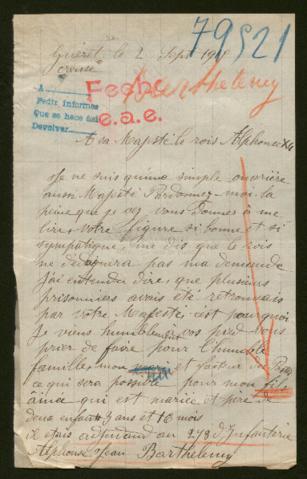 79521
Guéret le 2 Sept 1918
Creuse
Fecho
e.a.e.
Barthelemy
A
Pedir informes
Que se hace así
Devolver
A sa Majesté le rois Alphonse
Je ne suis qu'une simple ouvrière
aussi Majesté Pardonnez-moi la
peine que je vez vous donner à me
lire votre figure si bonne et si
sympatique me dis que le rois
ne dédaignera pas ma demande
J'ai entendu dire que plusieurs
prisonniers avais été retrouvais
par votre Majesté c'est pourquoi
Je viens humblement vous
prier de faire pour l'humble
famille mon et facteur
ce qui sera possible pour mon fils
ainsi qui est marié et père de
deux enfants 3 ans et 18 mois
il était au 278 d'Infanterie
Alphonse Jean Barthelemy